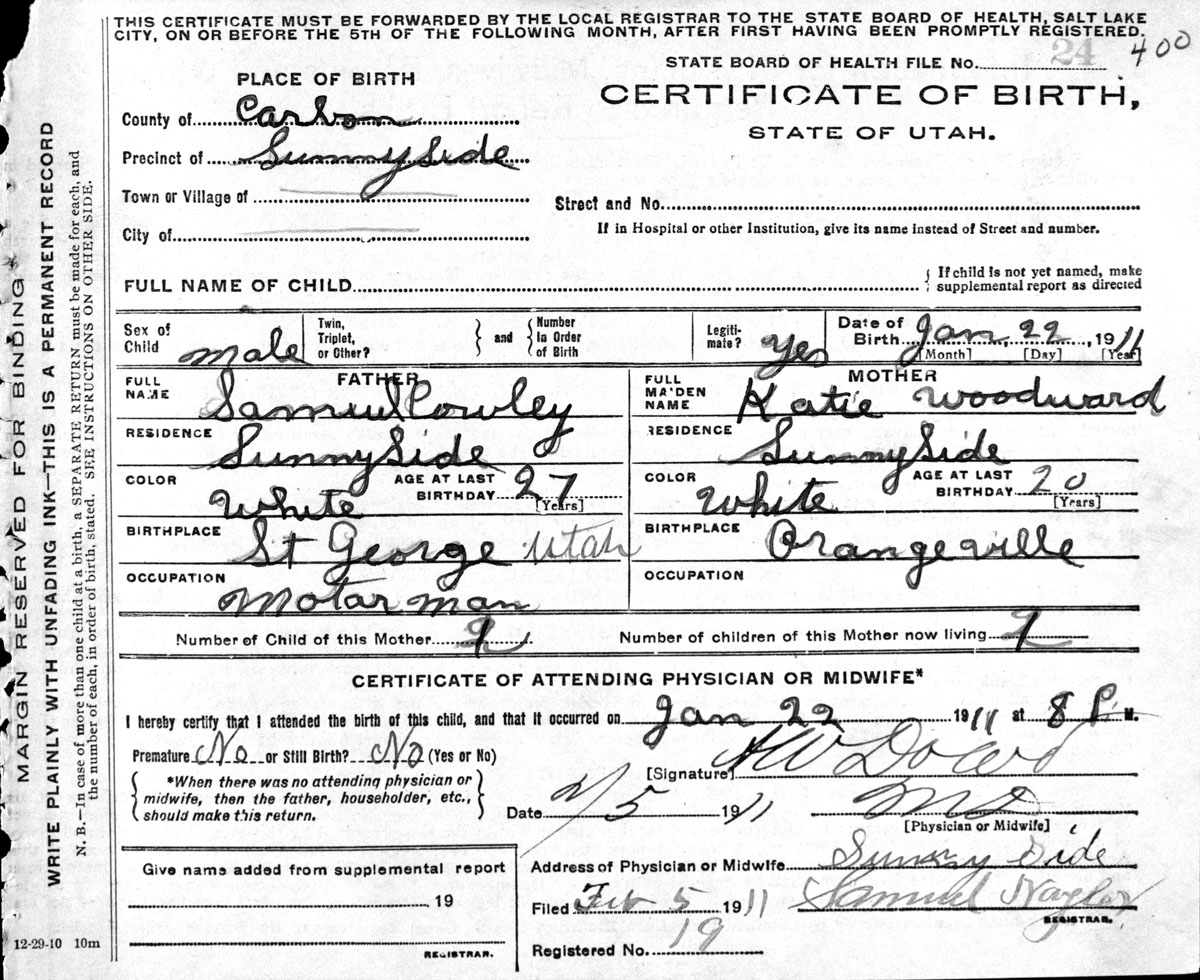 THIS CERTIFICATE MUST BE FORWARDED BY THE LOCAL REGISTRAR TO THE STATE BOARD OF HEALTH, SALT LAKE
CITY, ON OR BEFORE THE 5TH OF THE FOLLOWING MONTH, AFTER FIRST HAVING BEEN PROMPTLY REGISTERED.
STATE BOARD OF HEALTH FILE No. 24 400
PLACE OF BIRTH
CERTIFICATE OF BIRTH,
STATE OF UTAH.
County of Carbon
Precinct of Sunny Side
Town or Village of
Street and No.
City of
If in Hospital or other Institution, give its name instead of Street and number.
FULL NAME OF CHILD
If child is not yet named, make
supplemental report as directed
Sex of Child male
Twin, Triplet, or Other?
and
Number In Order of Birth
Legiti-mate? Yes
Date of Birth Jan 22, 1911
[Month] [Day] [Year]
FATHER
FULL NAME Samuel Cowley
RESIDENCE Sunny Side
COLOR White
AGE AT LAST BIRTHDAY 27
[Years]
BIRTHPLACE St George Utah
OCCUPATION Motar man
MOTHER
FULL MAIDEN NAME Katie Woodward
RESIDENCE Sunny Side
COLOR White
AGE AT LAST BIRTHDAY 20
[Years]
BIRTHPLACE Orangeville
OCCUPATION
Number of Child of this Mother 2
Number of children of this Mother now living 2
CERTIFICATE OF ATTENDING PHYSICIAN OR MIDWIFE*
I hereby certify that I attended the birth of this child, and that it occurred on Jan 22 1911 at 8 P. M.
Premature No or Still Birth? No (Yes or No)
*When there was no attending physician or
midwife, then the father, householder, etc.,
should make this return.
[Signature] H W Dowd
Date 2/5 1911
M D
[Physician or Midwife]
Address of Physician or Midwife Sunny Side
Filed Feb 5 1911 Samuel Naylor
REGISTRAR.
Registered No. 19
Give name added from supplemental report
19
REGISTRAR.
12-29-10 10m
MARGIN RESERVED FOR BINDING
WRITE PLAINLY WITH UNFADING INK—THIS IS A PERMANENT RECORD
N. B.—In case of more than one child at a birth, a SEPARATE RETURN must be made for each, and
the number of each, in order of birth, stated. SEE INSTRUCTIONS ON OTHER SIDE.